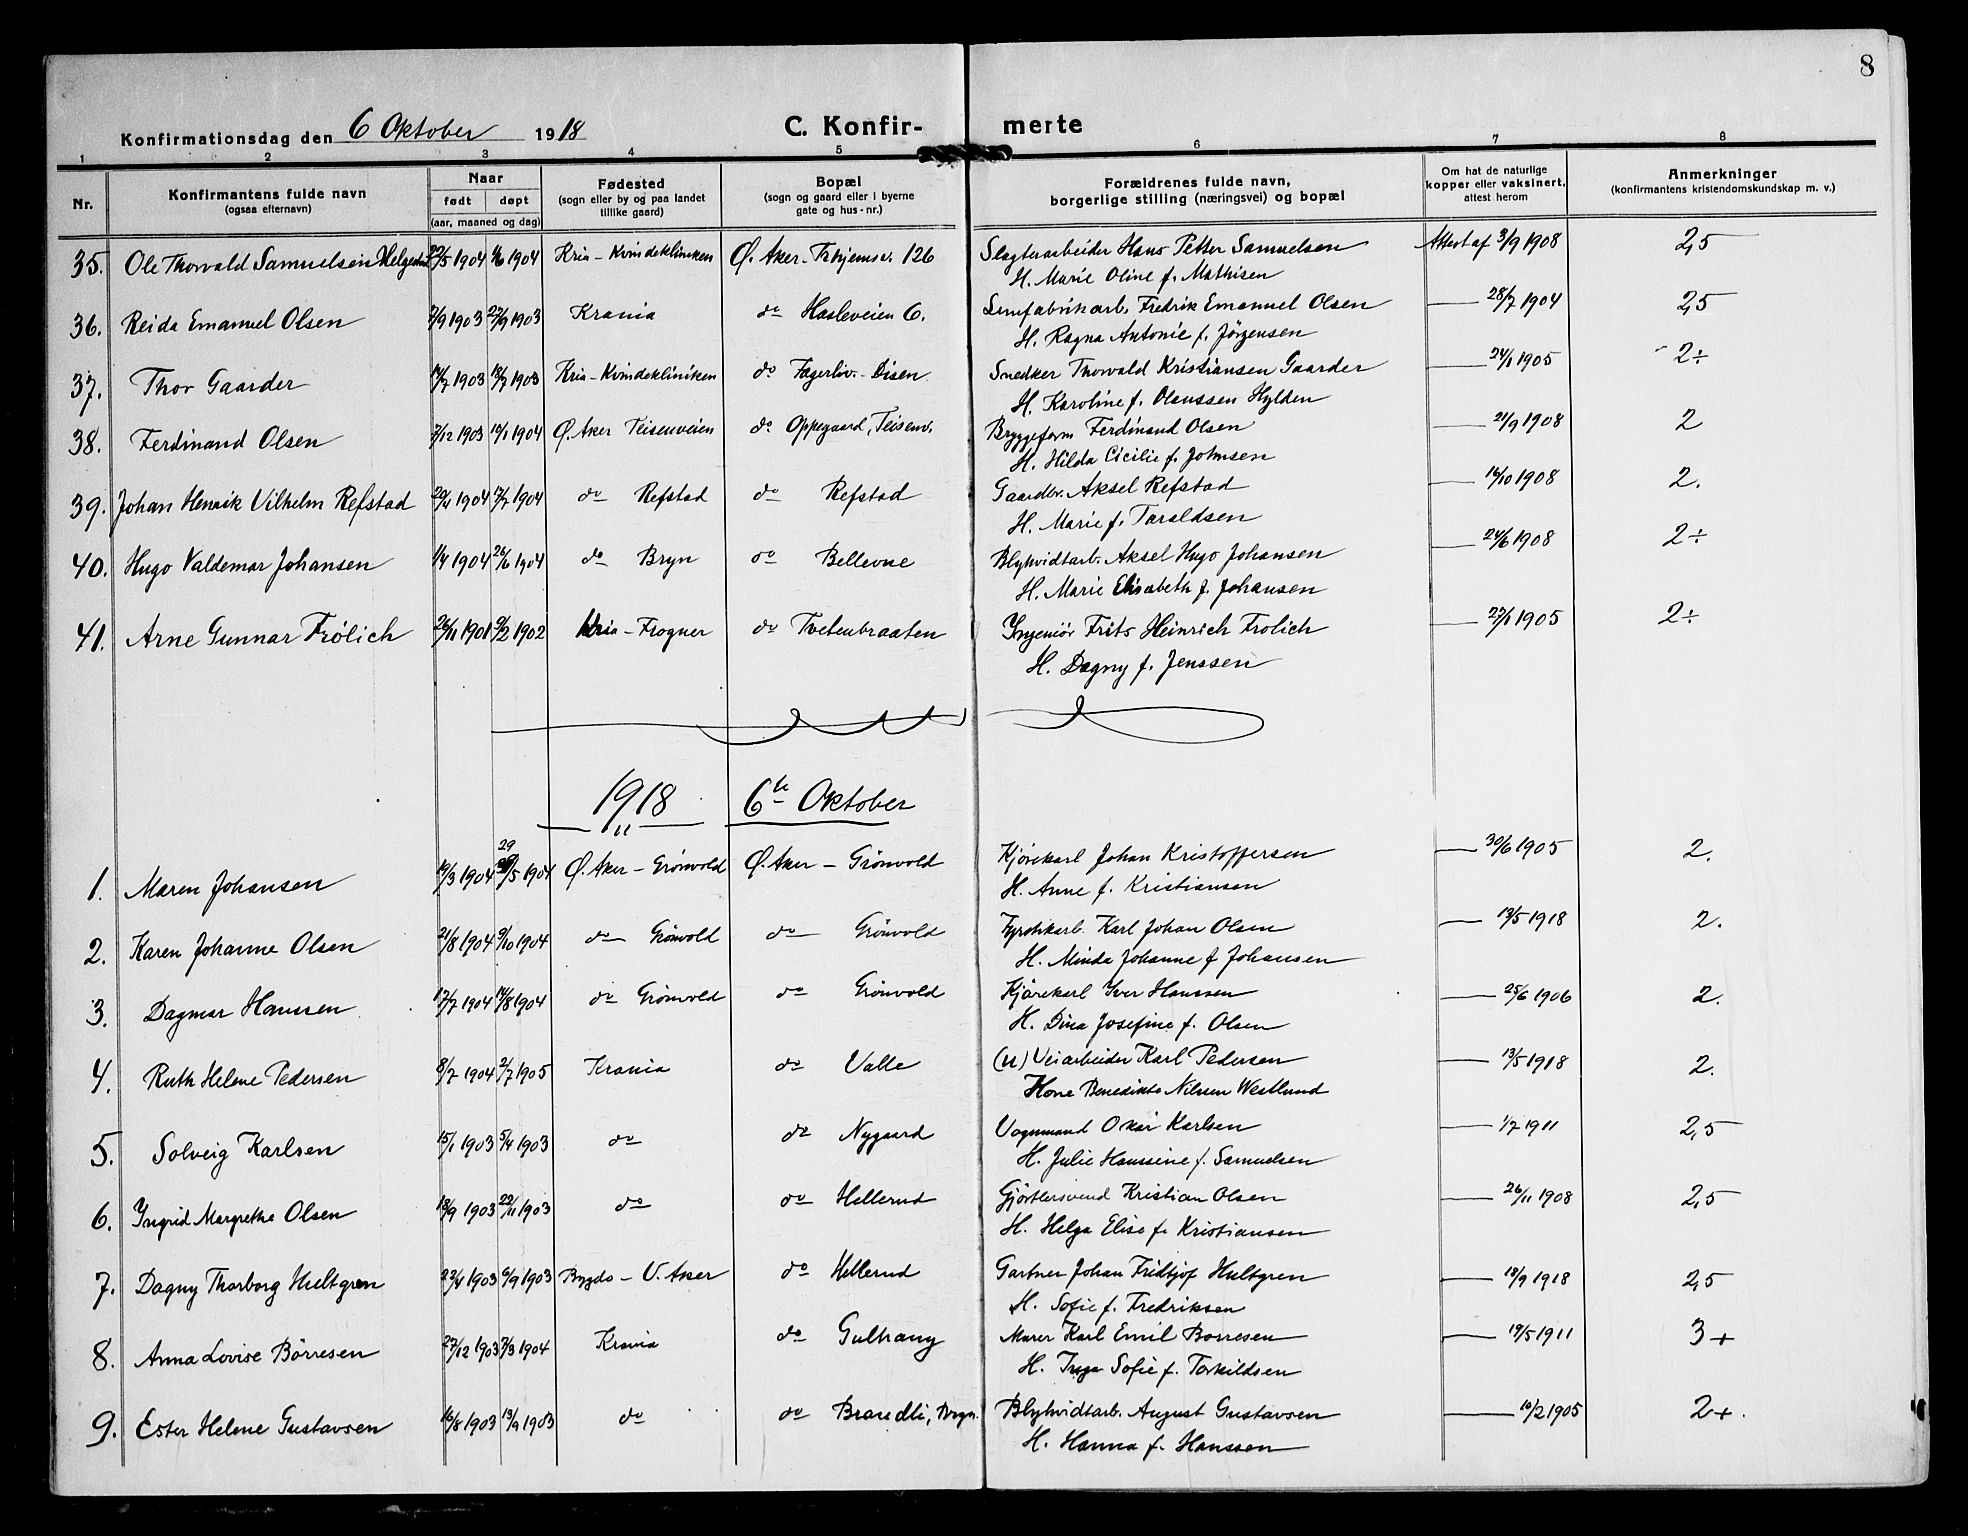 8
Konfirmationsdag den 6 Oktober 1918 C. Konfir- merte
1 2 3 4 5 6 7 8
Nr. Konfirmantens fulde navn (ogsaa efternavn) Naar født døpt (aar, maaned og dag) Fødested (sogn eller by og paa landet tillike gaard) Bopæl (sogn og gaard eller i byerne gate og hus-nr.) Forældrenes fulde navn, borgerlige stilling (næringsvei) og bopæl Om hat de naturlige kopper eller vaksinert, attest herom Anmerkninger (konfirmantens kristendomskundskap m. v.)
35. Ole Thorvald Samuelsen 1904 1904 Kria - Kvindekliniken Ø. Aker - 126 Slagterarbeider Hans Petter Samuelsen Attest af 3/9 1908 2,5
H. Marie Oline f. Mathisen
36. Reida Emanuel Olsen 2/9 1903 27/9 1903 Krania do Hasleveien 6. Fredrik Emanuel Olsen 28/7 1904 2,5
H. Ragna Antonie f. Jörgensen
37. Thor Gaarder 1903 1903 Kria - Kvindekliniken do Fagerliv. - Disen Snedker Thorvald Kristiansen Gaarder 24/1 1905 2÷
H. Karoline f. Olaussen Hylden
38. Ferdinand Olsen 7/12 1903 10/1 1904 Ø. Aker Teisenveien do Oppegaard, Teisenv. Bryggeform Ferdinand Olsen 21/9 1908 2
H. Hilda Cicilie f. Johnsen
39. Johan Henrik Vilhelm Refstad 1904 17/7 1904 do Refstad do Refstad Gaardbr. Aksel Refstad 16/10 1908 2.
H. Marie f. Taraldsen
40. Hugo Valdemar Johansen 1/4 1904 26/6 1904 do Bryn do Bellevue Blyhvidtarb. Aksel Hugo Johansen 24/6 1908 2÷
H. Marie Elisabeth f. Johansen
41. Arne Gunnar Frölich 26/11 1901 9/2 1902 Kria - Frogner do Tvetenbraaten Ingeniör Frits Heinrich Frolich 1905 2÷
H. Dagny f. Jenssen
1918 6te Oktober
29
1. Maren Johansen 1904 /5 1904 Ø. Aker - Grönvold Ø. Aker - Grönvold Kjörekarl Johan Kristoffersen 30/6 1905 2.
H. Anne f. Kristiansen
2. Karen Johanne Olsen 21/8 1904 9/10 1904 do Grönvold do Grönvold Karl Johan Olsen 13/5 1918 2.
H. Minda Johanne f Johansen
3. Dagmar Hanssen 17/7 1904 14/8 1904 do Grönvold do Grönvold Kjörekarl Iver Hanssen 25/6 1906 2.
H. Dina Josefine f. Olsen
4. Ruth Helene Pedersen 8/7 1904 2/7 1905 Krania do Valle (u) Veiarbeider Karl Pedersen 13/5 1918 2.
Kone Benedikte Nilsen Westlund
5. Solveig Karlsen 15/1 1903 5/4 1903 do do Nygaard Vognmand Oskar Karlsen 1/7 1911 2,5
H. Julie Hanssine f. Samuelsen
6. Ingrid Margrethe Olsen 18/9 1903 22/11 1903 do do Hellerud Gjörtlersvend Kristian Olsen 26/11 1908 2,5
H. Helga Elise f. Kristiansen
7. Dagny Thorborg Hultgren 1903 6/9 1903 Bygdo - V. Aker do Hellerud Gartner Johan Fridtjof Hultgren 18/9 1918 2,5
H. Sofie f. Fredriksen
8. Anna Lovise Börresen 27/12 1903 7/3 1904 Krania do Gulhaug Murer Karl Emil Borresen 19/5 1911 3+
H. Inga Sofie f. Torkildsen
9. Ester Helene Gustavsen 16/8 1903 13/9 1903 do do Brandli, Bryn. Blyhvidtarb. August Gustavsen 10/2 1905 2+.
H. Hanna f. Hanssen